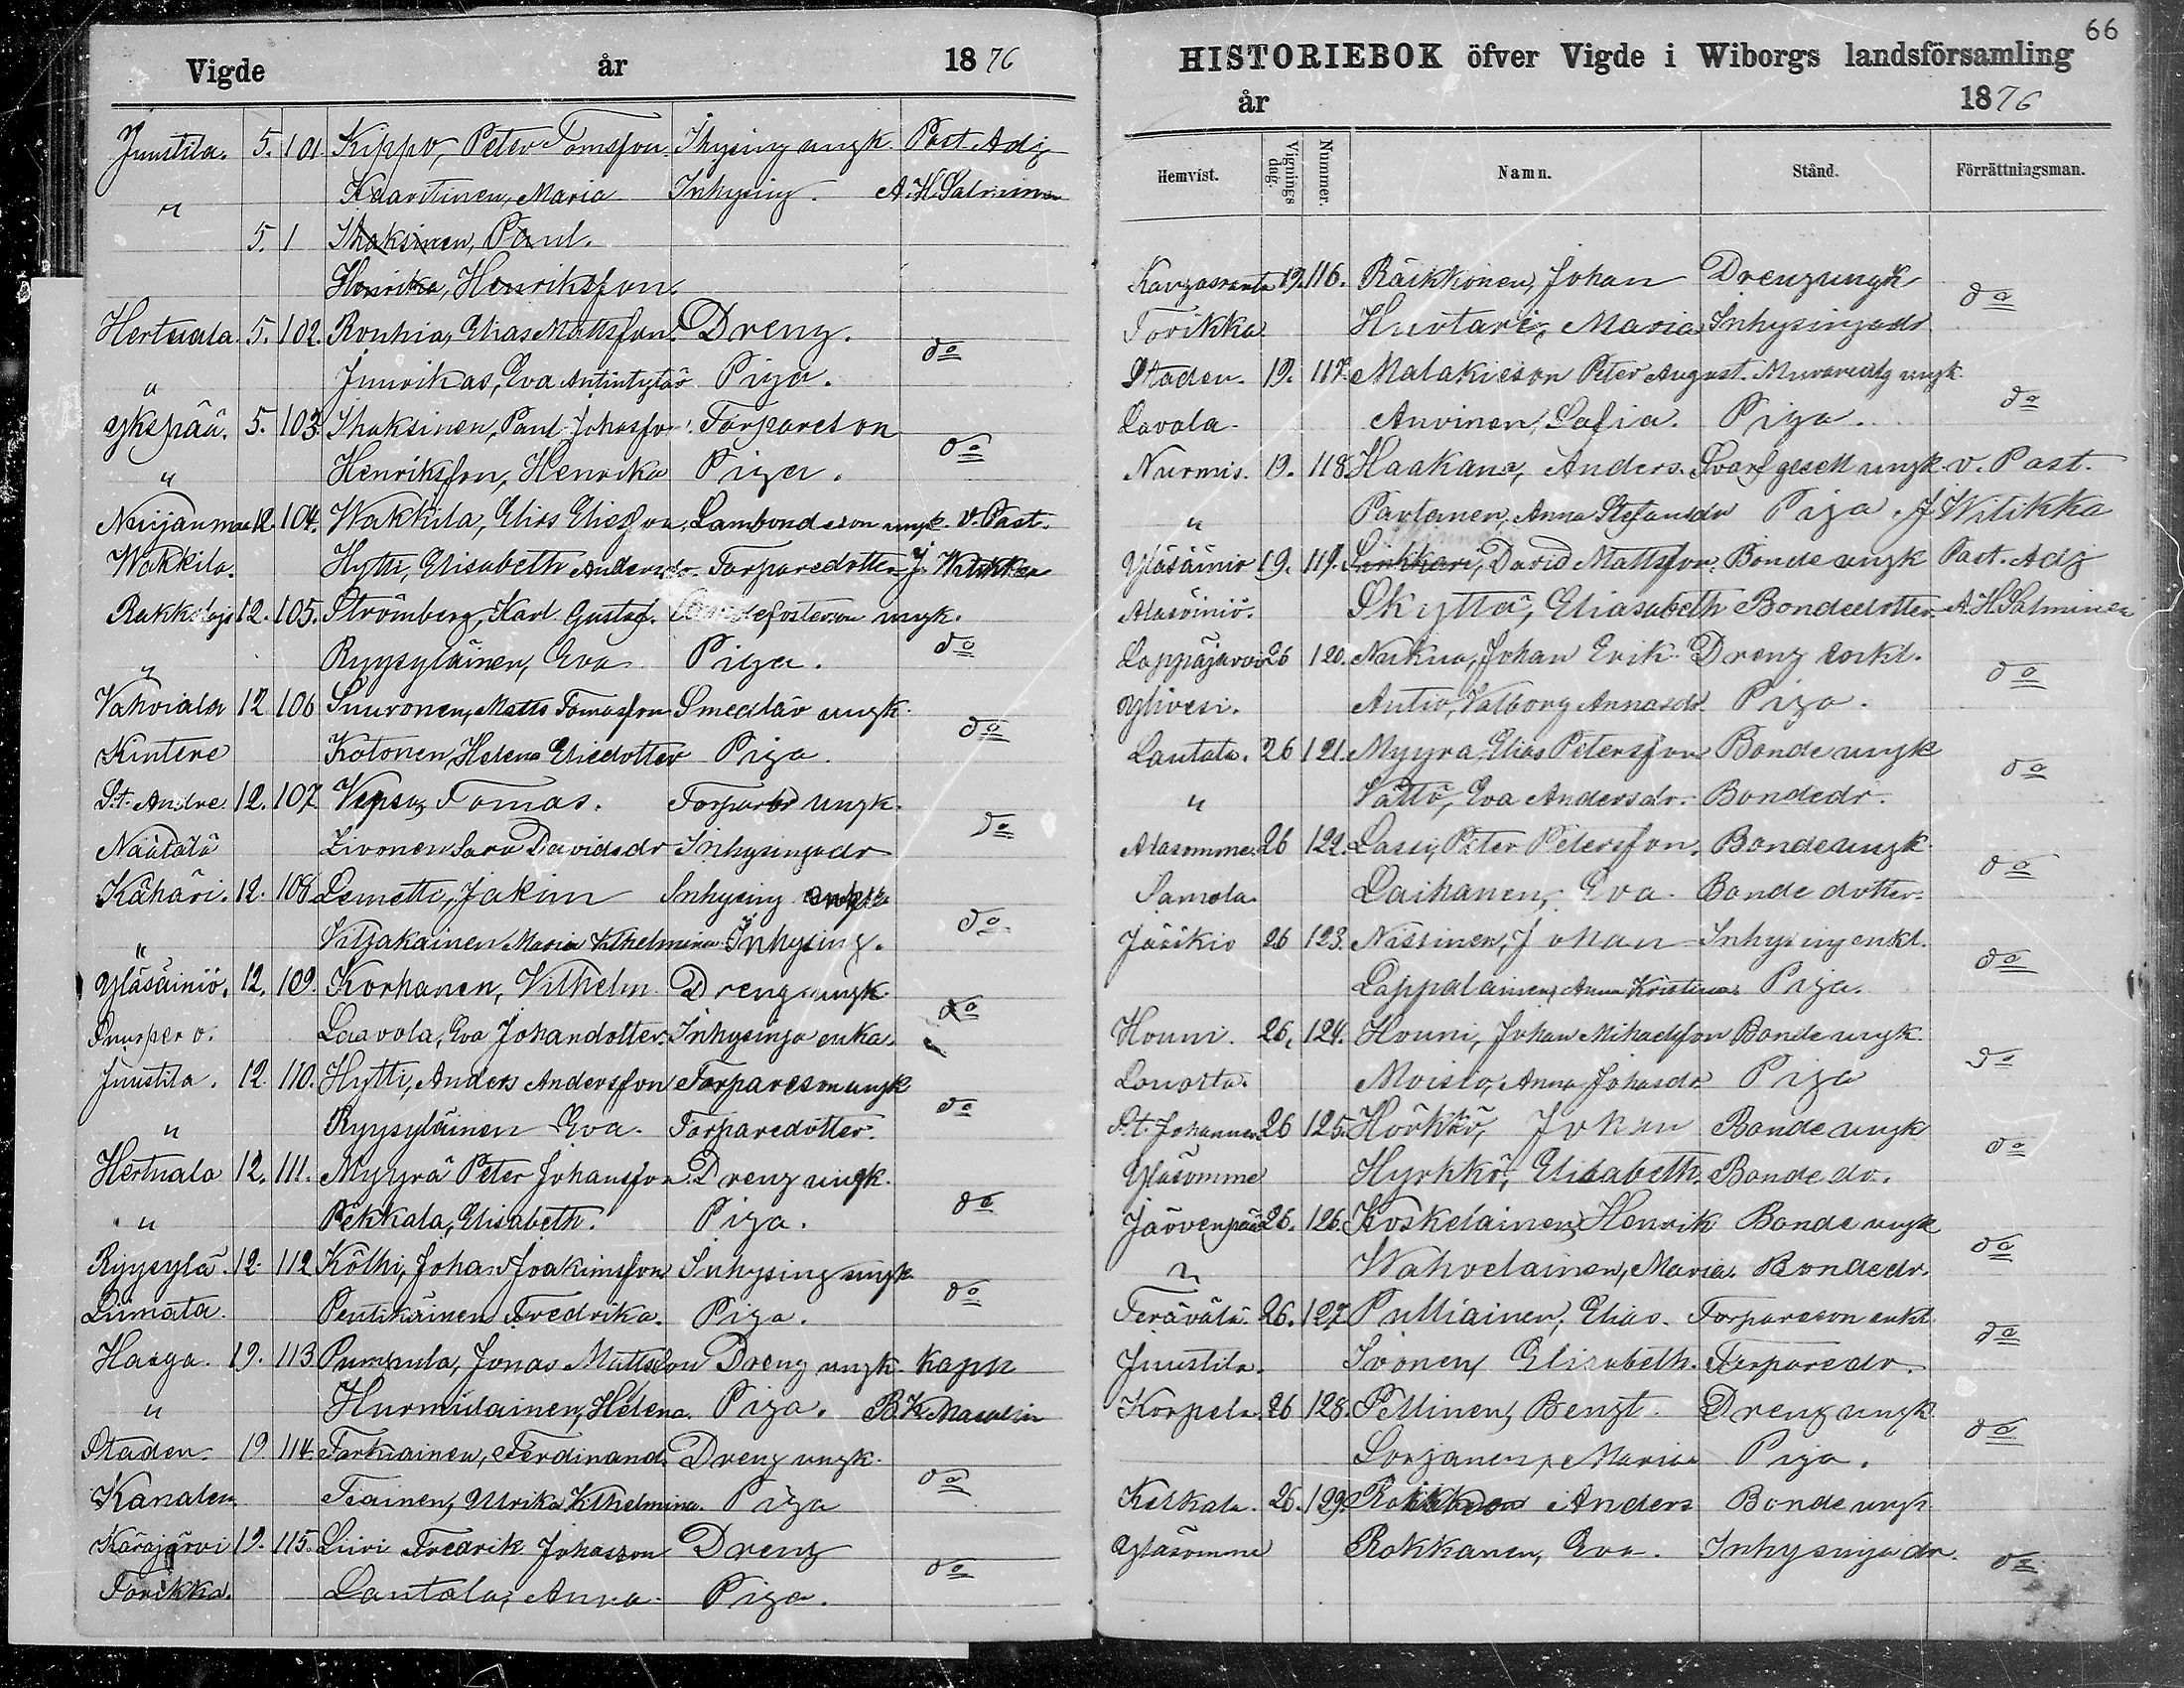 Vigde år 1876
Juustila. 5. 101 Kippo, Peter Tomsson Ihysing ungk. Past. Adj
" Kaartinen, Maria Inhysing. A. H. Salminen
5. 1 Ihaksinen, Paul.
Henrika, Henriksson.
Hertuala. 5. 102. Ronhia, Elias Mattsson. Dreng. do
" Junrikas, Eva Antintytär Piga.
Ykspää. 5. 103. Ihaksinen, Paul Johasson. Torpareson do
" Henriksson, Henrika Piga.
Nuijanmaa 12. 104. Wakkila, Elias Eliesson, Lambondeson ungk. V. Past.
Wakkila. Hytti, Elisabeth Andersdr. Torparedotter J. Witikka
12. 105. Strömberg, Karl Gustaf. ungk. do
" Ryysyläinen, Eva Piga.
Vahviala 12 106 Suuronen, Matts Tomasson Smedlär ungk. do
Kintere Kotonen, Helena Eliedotter Piga.
S:t Andre 12. 107 Vepsä, Tomas. Torpare ungk. do
Näätälä Livonen Sara Davidsdr Inhysingedr
Kähäri. 12. 108 Lemetti, Jakim Inhysing do
" Viljakainen Maria Vilhelmina Inhysing.
Yläsäiniö. 12. 109. Korhanen, Vilhelm Dreng ungk. do
Laavola, Eva Johandotter. Inhysinge enka.
Juustila. 12. 110. Hytti, Anders Andersson Torpareson ungk do
" Ryysyläinen Eva. Torparedotter.
Hertuala 12. 111. Myyrä Peter Johansson Dreng ungk. do
" Pekkala, Elisabeth. Piga.
Ryysylä. 12. 112 Kölhi, Johan Joakimsson Inhysing ungk. do
Liimata. Pentikäinen Fredrika. Piga.
Haaga. 19. 113 Pumpula, Jonas Mattsson Dreng ungk. Kapn
" Hurmulainen, Helena. Piga. B. K. Masalin
Staden. 19. 114. Tarkiainen, Ferdinand. Dreng ungk. do
Kanalen Tiainen, Ulrika Vilhelmina. Piga
Kärsjärvi 19. 115. Liiri Fredrik Johasson Dreng do
Torikka. Lantala, Anna Piga.
66
HISTORIEBOK öfver Vigde i Wiborgs landsförsamling
år 1876
Hemvist. Vignings dag. Nummer. Namn. Stånd. Förrättningsman.
Kangasranta 19. 116. Räikkönen, Johan Drengungk do
Torikka Hurtari, Maria Inhysingedr
Staden. 19. 117. Malakieson Peter August. ungk. do
Lavola. Auvinen, Sofia. Piga.
Nurmis. 19. 118. Haakana, Anders. Svarfgesell ungk. v. Past.
" Partanen, Anna Stefansdr Piga. J. Witikka
Yläsäiniö 19. 119. Sinkkari, David Mattsson. Bonde ungk Past. Adj
Alasäiniö. Skyttä, Eliasabeth Bondedotter A. H. Salminen
Lappäjärvi 26 120. Nukua, Johan Erik Dreng enkl. do
Ylivesi. Antio, Valborg Annasdr. Piga.
Lantala. 26 121. Myyra, Elias Petersson Bonde ungk do
" Sättö, Eva Andersdr. Bondedr.
Alasomme. 26 122. Lassi, Peter Petersson. Bonde ungk do
Samola. Laihanen, Eva Bonde dotter
Jääskis 26 123. Nissinen, Johan Inhysing enkl. do
Lappalainen, Anna Kristina. Piga.
Houni. 26. 124. Houni, Johan Mikaelsson Bonde ungk. do
Louosta. Moisio, Anna Johasdr Piga
S:t Johannes 26 125. Hörkkö, Johan Bonde ungk do
Yläsomme Hyrkkö, Elisabeth. Bonde dr.
Järvenpää 26. 126. Koskelainen, Henrik Bonde ungk do
" Wahvelainen, Maria. Bondedr.
Terävälä. 26. 127. Pulliainen, Elias. Torpareson enkl. do
Juustila. Ivonen, Elisabeth. Torparedr.
Korpela. 26 128. Pellinen, Bengt. Dreng ungk. do
Lorjanen, Maria Piga.
Kelkala. 26. 129. Anders Bonde ungk
Yläsomme Rokkanen, Eva. Inhysinge dr. do